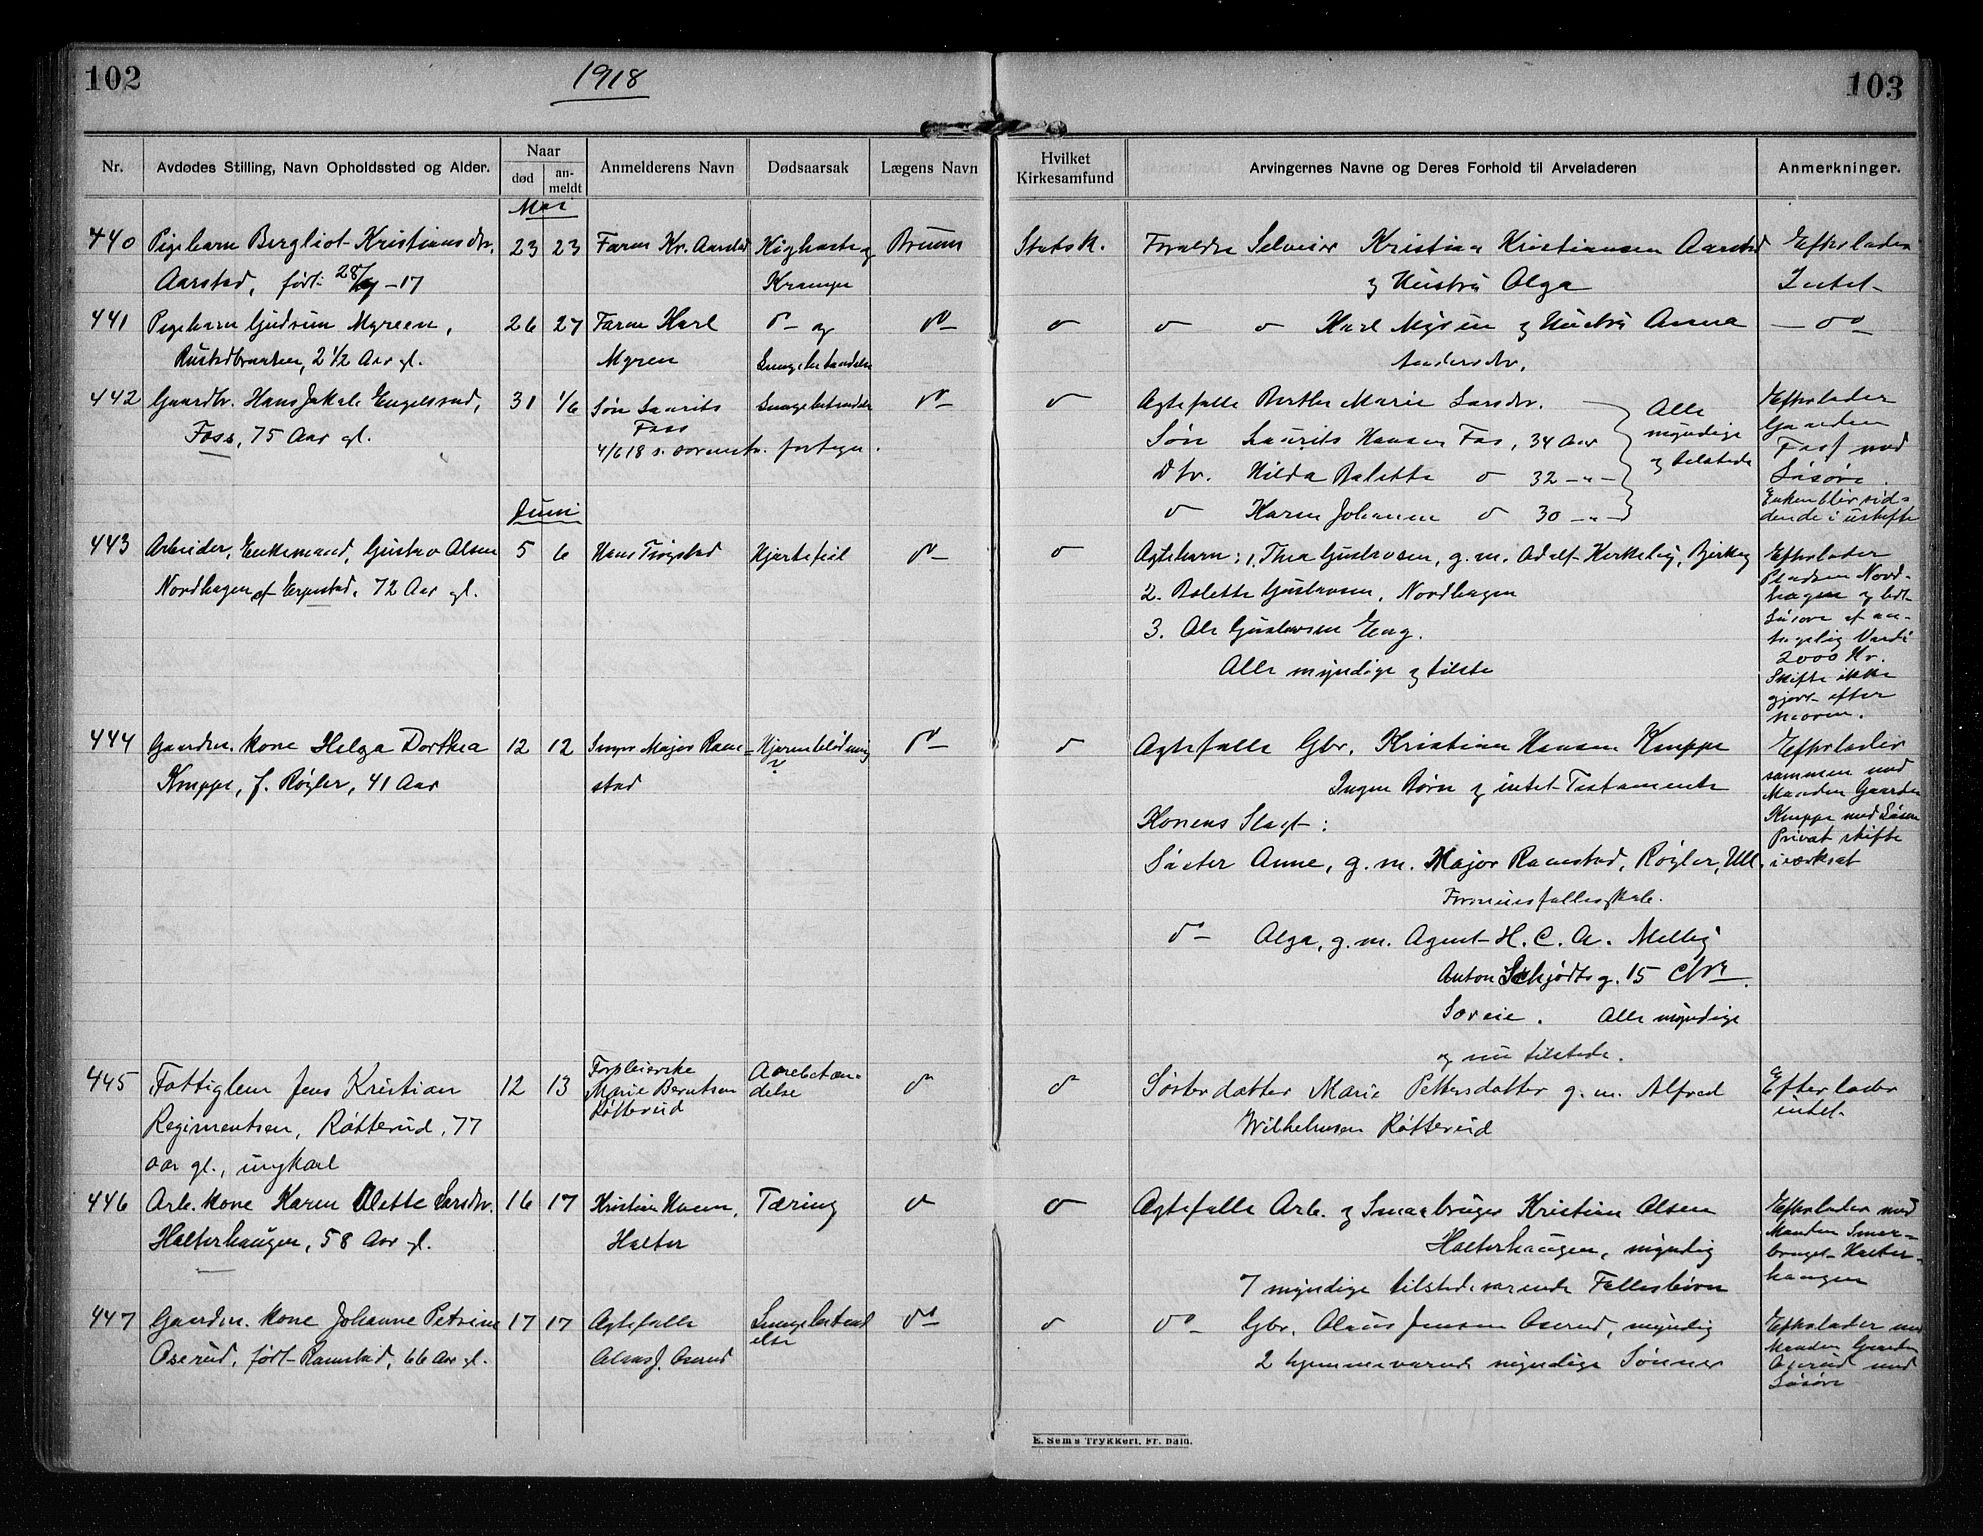 102
1918
103
Nr.
Avdødes Stilling, Navn Opholdssted og Alder.
Naar
død
an-
meldt
Anmelderens Navn
Dødsaarsak
Lægens Navn
Hvilket
Kirkesamfund
Arvingernes Navne og Deres Forhold til Arveladeren
Anmerkninger.
Mai
440 Pigebarn Bergliot Kristiansdtr. 23 23 Faren Kr. Aarstad Kighoste og Bruun Statsk. Foreldre Selveier Kristian Kristiansen Aarstad Efterlader
Aarstad, født 28/ -17 Krampe og Hustru Olga Intet
441 Pigebarn Gudrun Myreen, 26 27 Faren Karl do og do do do do Karl Myren og Hustru Anna - do
Rustadbraaten, 2 1/2 Aar gl. Myren Lungebetændelse Andersdtr.
442 Gaardbr. Hans Jakob Engelstad, 31 1/6 Søn Laurits Lungebetændelse do do Ægtefælle Berthe Marie Larsdtr. Alle Efterlader
Foss, 75 Aar gl. Foss Søn Laurits Hansen Fos, 34 Aar myndige Gaarden
4/6 18 s. oversendt fortegn. Dtr. Hilda Valette do 32 -"- og tilstede Foss med
do Karen Johanne do 30 -"- Løsøre.
Juni
Enken blir sid-
dende i uskifte
443 Arbeider, Enkemand, Gustav Olsen 5 6 Hans Trøgstad Hjertefeil do do Egtebarn: 1. Thea Gustavsen, g.m. Adolf Kirkeby, Bjerkøy Efterlader
Nordhagen af Ergestad, 72 Aar gl. 2. Valette Gustavsen, Nordhagen Pladsen Nord-
3. Ole Gustavsen Eng. hagen og lidt
Alle myndige og tilste Løsøre af an-
tagelig Værdi
2000 Kr.
Skifte ikke
gjort efter
moren.
444 Gaardm. kone Helga Dorthea 12 12 Svoger Major Ram- Hjerneblødning do do Ægtefælle Gbr. Kristian Hansen Knappe Efterlader
Knappe, f. Røgler, 41 Aar stad ? Ingen Børn og intet Testamente sammen med
Konens Slegt: Manden Gaarden
Knappe med Løsøre
Søster Anne, g.m. Major Ramstad, Røgler, Ull. Privat skifte
Formuesfællesskab. iværksat
do Olga, g.m. Agent H. C. A. Melby
Anton Schjødts g. 15 Chra.
Særeie. Alle myndige
og nu tilstede.
445 Fattiglem Jens Kristian 12 13 Forpleierske Aarebetæn- do do Søsterdatter Marie Pettersdatter g.m. Alfred Efterlader
Regimentsen, Røtterud, 77 Marie Berntsen delse Wilhelmsen Røtterud intet.
aar gl., ungkarl Røtterud
446 Arb. kone Karen Olette Larsdtr. 16 17 Kristian Hansen, Tæring do do Ægtefælle Arb. og Smaabruger Kristian Olsen Efterlader med
Halterhaugen, 58 Aar gl. Halter Halterhaugen, myndig Manden Smaa-
7 myndige tilstedeværende Fællesbørn bruget Halter-
haugen
447 Gaardm. kone Johanne Petrine 17 17 Ægtefælle Lungebetænd do do do Gbr. Olaus Jensen Oserud, myndig Efterlader med
Oserud, født Ramstad, 66 Aar gl. Olaus J. Oserud else 2 hjemmeværende myndige Sønner Manden Gaarden
Oserud med
Løsøre
E. Sem's Trykkeri, Fr. hald.